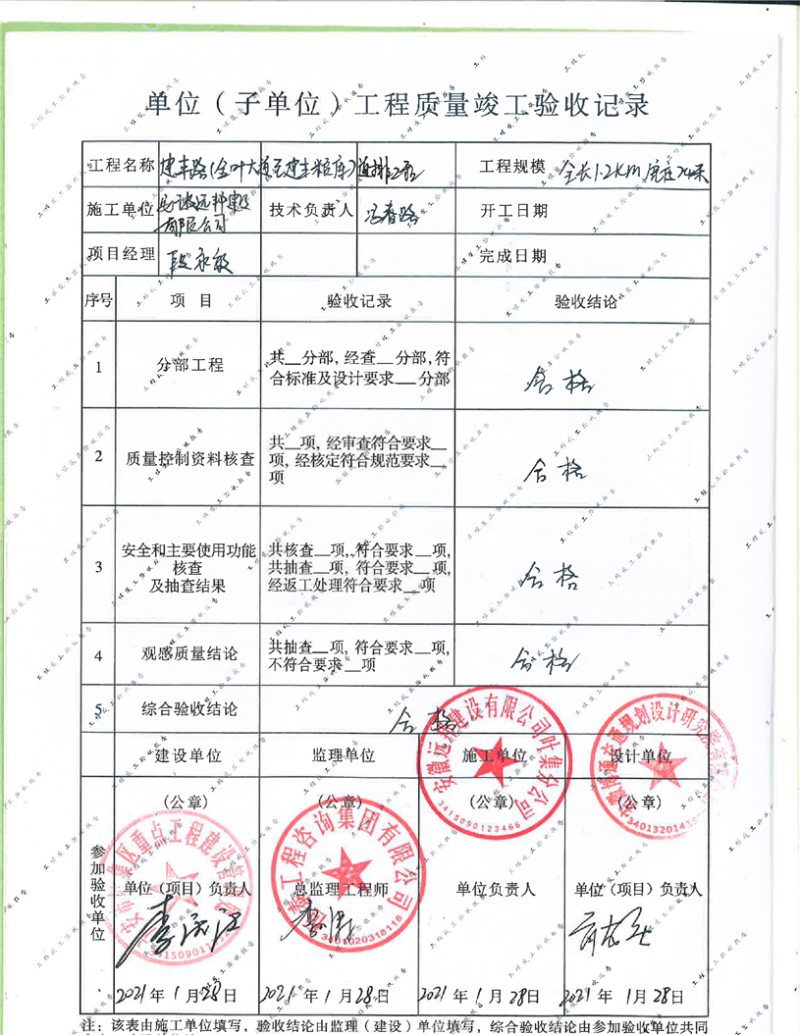 单位（子单位）工程质量竣工验收记录
工程名称 建丰路(金叶大道至建丰粮库) 工程规模 全长1.2km 宽度24米
施工单位 安徽远邦建设有限公司 技术负责人 冯春路 开工日期
项目经理 段永敏 完成日期
序号 项 目 验收记录 验收结论
1 分部工程 共__分部，经查__分部，符 合格
合标准及设计要求__分部
2 质量控制资料核查 共__项，经审查符合要求__ 合格
项，经核定符合规范要求__
项
3 安全和主要使用功能 共核查__项，符合要求__项， 合格
核查 共抽查__项，符合要求__项，
及抽查结果 经返工处理符合要求__项
4 观感质量结论 共抽查__项，符合要求__项， 合格
不符合要求__项
5 综合验收结论 合格
建设单位 监理单位 施工单位 设计单位
参加验收单位
(公章) (公章) (公章) (公章)
单位（项目）负责人 总监理工程师 单位负责人 单位（项目）负责人
2021年1月28日 2021年1月28日 2021年1月28日 2021年1月28日
注：该表由施工单位填写，验收结论由监理（建设）单位填写，综合验收结论由参加验收单位共同
安徽远邦建设有限公司叶集分公司
3415090123466
区重点工程建设管
工程咨询集团有限公司
3401020318118
规划设计研究
工程竣工验收报告